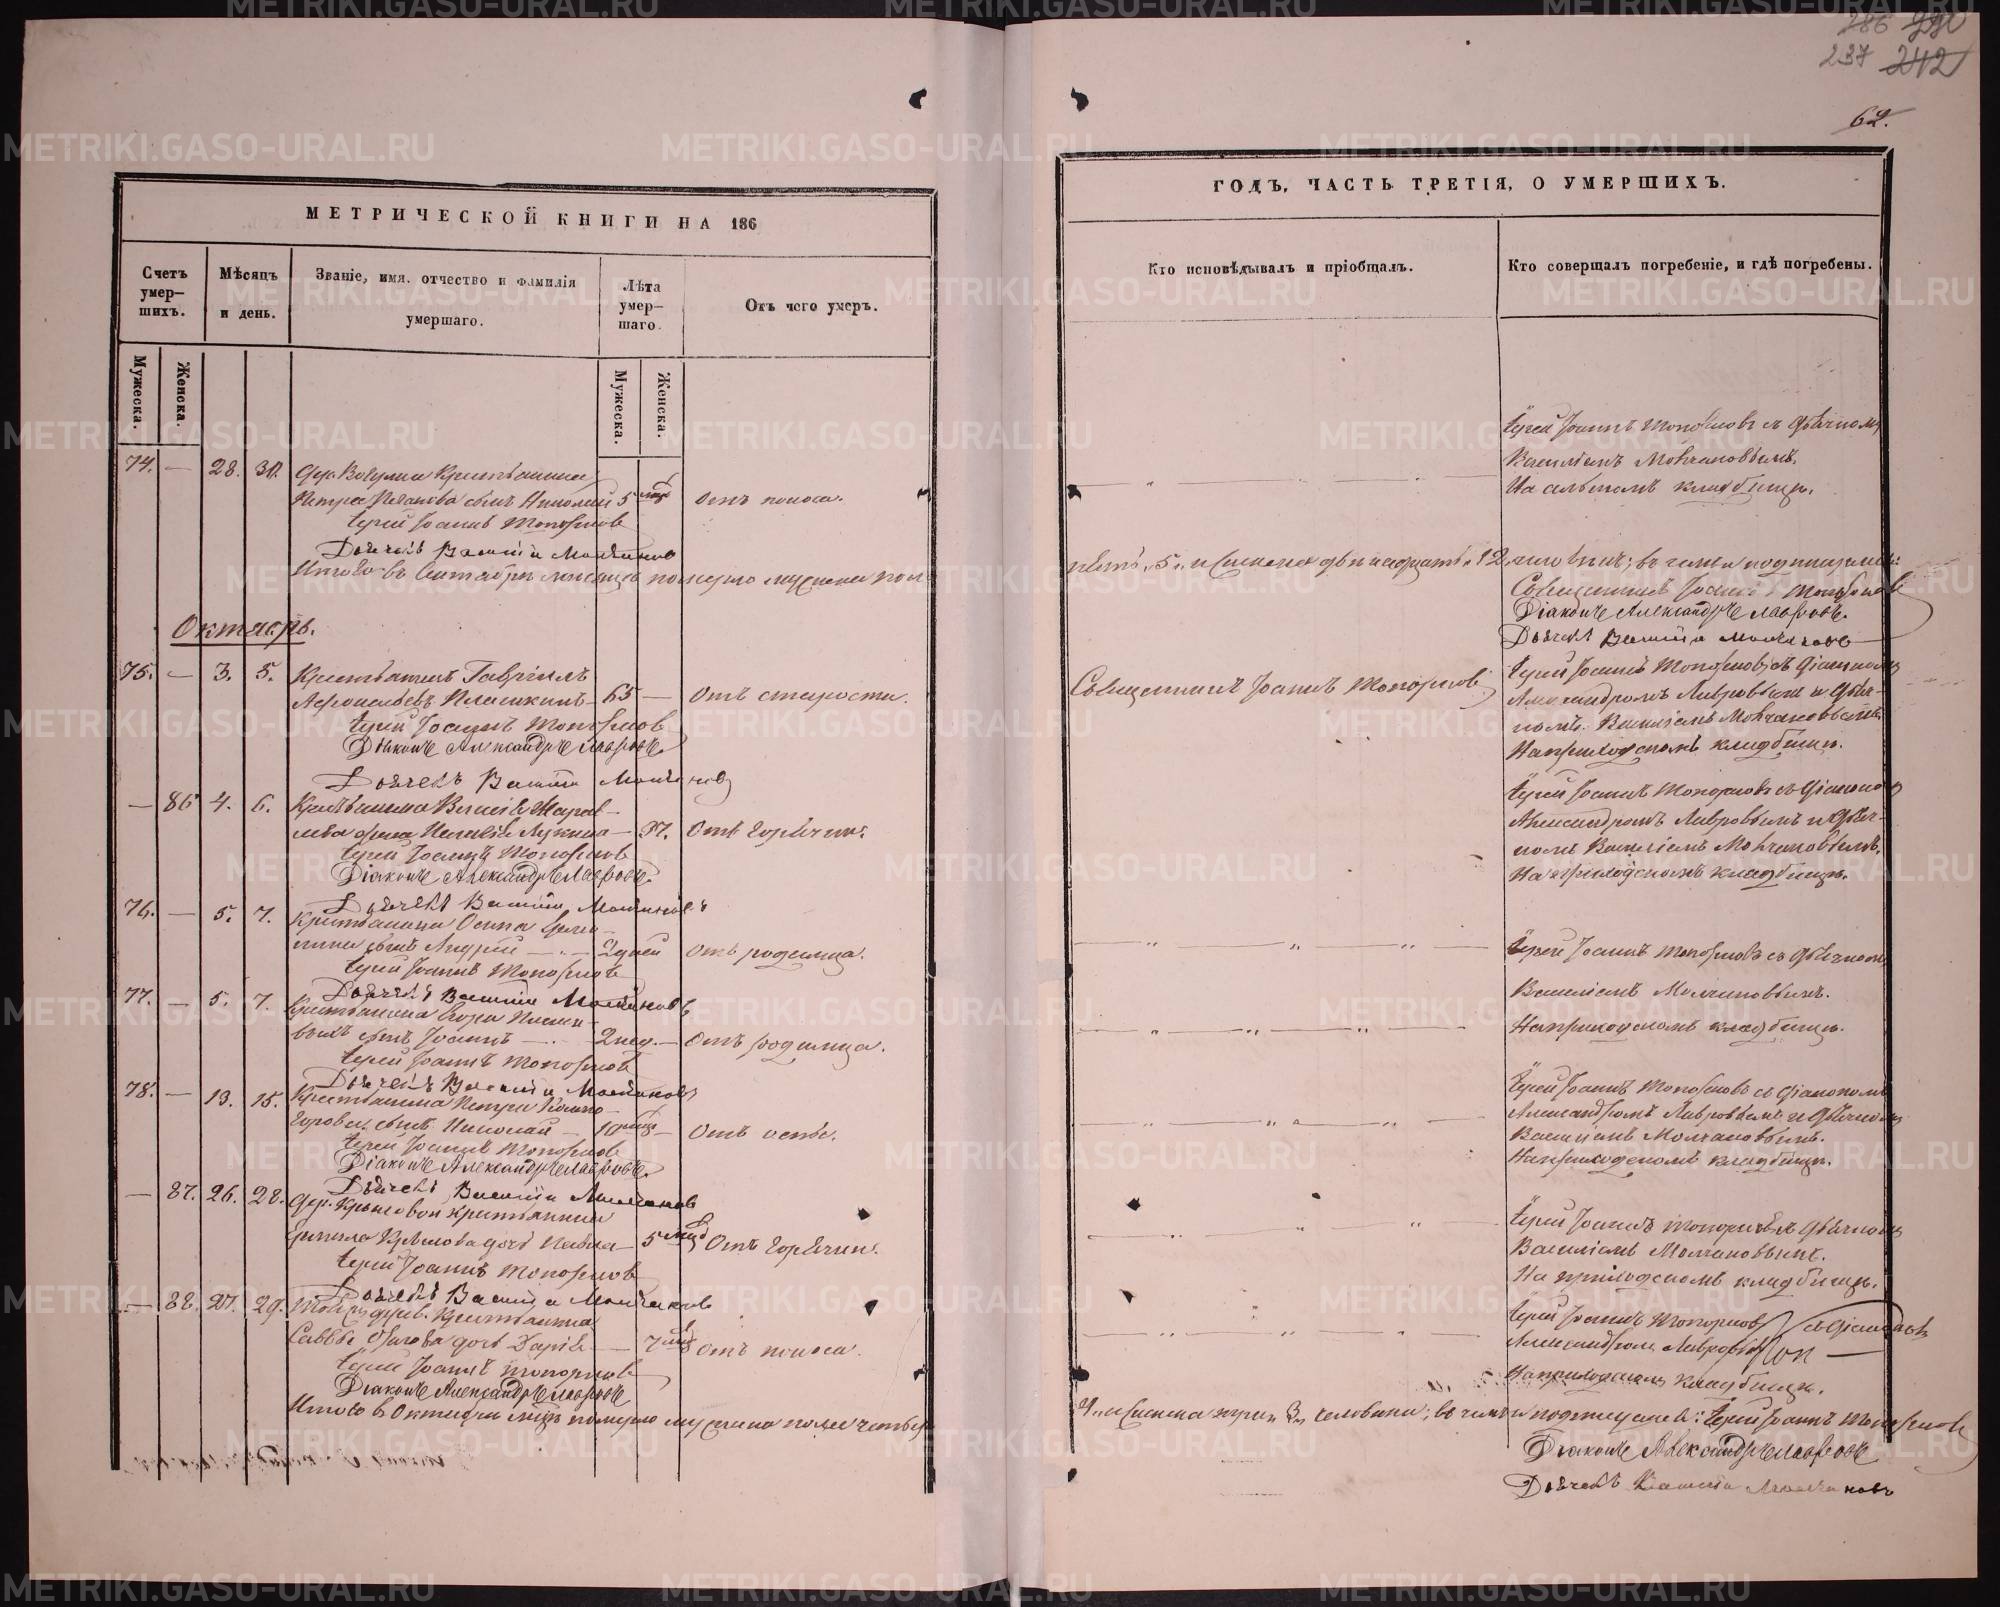 286 290
237 242
62.
МЕТРИЧЕСКОЙ КНИГИ НА 186
Счетъ умер—шихъ.
Мѣсяцъ и день.
Званіе, имя, отчество и фамилія умершаго.
Лѣта умер—шаго.
Отъ чего умеръ.
Мужеска.
Женска.
Мужеска.
Женска.
74. — 28. 30. Дер. крестьянина
Петра сынъ Николай 5 мѣс Отъ поноса.
Іерей Іоаннъ Топорковъ
Дьячекъ Василій Молчановъ
Итого въ Сентябрѣ мѣсяцѣ померло мужеска пол
Октябрь.
75. — 3. 5. Крестьянинъ Гавріилъ
65 — Отъ старости.
Іерей Іоаннъ Топорковъ
Діаконъ Александръ Лавровъ.
Дьячекъ Василій Молчановъ
— 86 4. 6. Крестьянина
жена Пелагія Лукина — 37. Отъ горячки.
Іерей Іоаннъ Топорковъ
Діаконъ Александръ Лавровъ.
Дьячекъ Василій Молчановъ
76. — 5. 7. Крестьянина Осипа
сынъ Андрей — 2 дней Отъ родимца.
Іерей Іоаннъ Топорковъ
Дьячекъ Василій Молчановъ
77. — 5. 7. Крестьянина Егора
сынъ Іоаннъ — 2 нед. — Отъ родимца.
Іерей Іоаннъ Топорковъ
Дьячекъ Василій Молчановъ
78. — 13. 15. Крестьянина Петра
сынъ Николай — 10 мѣс — Отъ оспы.
Іерей Іоаннъ Топорковъ
Діаконъ Александръ Лавровъ.
Дьячекъ Василій Молчановъ
— 87. 26. 28. Дер. Крыловой крестьянина
Крылова дочь — 5 нед Отъ горячки.
Іерей Іоаннъ Топорковъ
Дьячекъ Василій Молчановъ
— 88. 27. 29. крестьянина
Саввы дочь Дарія — 7 мѣс Отъ поноса.
Іерей Іоаннъ Топорковъ
Діаконъ Александръ Лавровъ
Итого въ Октябрѣ мѣсяцѣ померло мужеска пола четыре
ГОДЪ, ЧАСТЬ ТРЕТІЯ, О УМЕРШИХЪ.
Кто исповѣдывалъ и пріобщалъ.
Кто совершалъ погребеніе, и гдѣ погребены.
Іерей Іоаннъ Топорковъ съ дьячкомъ
Василіемъ Молчановымъ.
На кладбищѣ.
пять 5. и женска двенадцать 12 человѣкъ; въ чемъ и подписались:
Священникъ Іоаннъ Топорковъ
Діаконъ Александръ Лавровъ.
Дьячекъ Василій Молчановъ
Священникъ Іоаннъ Топорковъ
Іерей Іоаннъ Топорковъ съ діакономъ
Александромъ Лавровымъ и дьяч-
комъ Василіемъ Молчановымъ.
На приходскомъ кладбищѣ.
Іерей Іоаннъ Топорковъ съ діакономъ
Александромъ Лавровымъ и дьяч-
комъ Василіемъ Молчановымъ.
На приходскомъ кладбищѣ.
Іерей Іоаннъ Топорковъ съ дьячкомъ
Василіемъ Молчановымъ.
На приходскомъ кладбищѣ.
Іерей Іоаннъ Топорковъ съ діакономъ
Александромъ Лавровымъ и дьячкомъ
Василіемъ Молчановымъ.
На приходскомъ кладбищѣ.
Іерей Іоаннъ Топорковъ съ дьячкомъ
Василіемъ Молчановымъ.
На приходскомъ кладбищѣ.
Іерей Іоаннъ Топорковъ съ діакономъ
Александромъ Лавровымъ
На приходскомъ кладбищѣ.
4, и женска три 3, человѣка; въ чемъ и подписуемся: Іерей Іоаннъ Топорковъ
Діаконъ Александръ Лавровъ
Дьячекъ Василій Молчановъ
METRIKI.GASO-URAL.RU